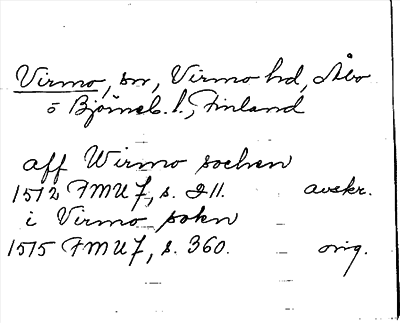 Virmo, sn, Virmo hd, Åbo
o Björneb. l., Finland
aff Wirmo sochen
1512 FMU 7, s. 211. avskr.
i Virmo sokn
1515 FMU 7, s. 360. orig.